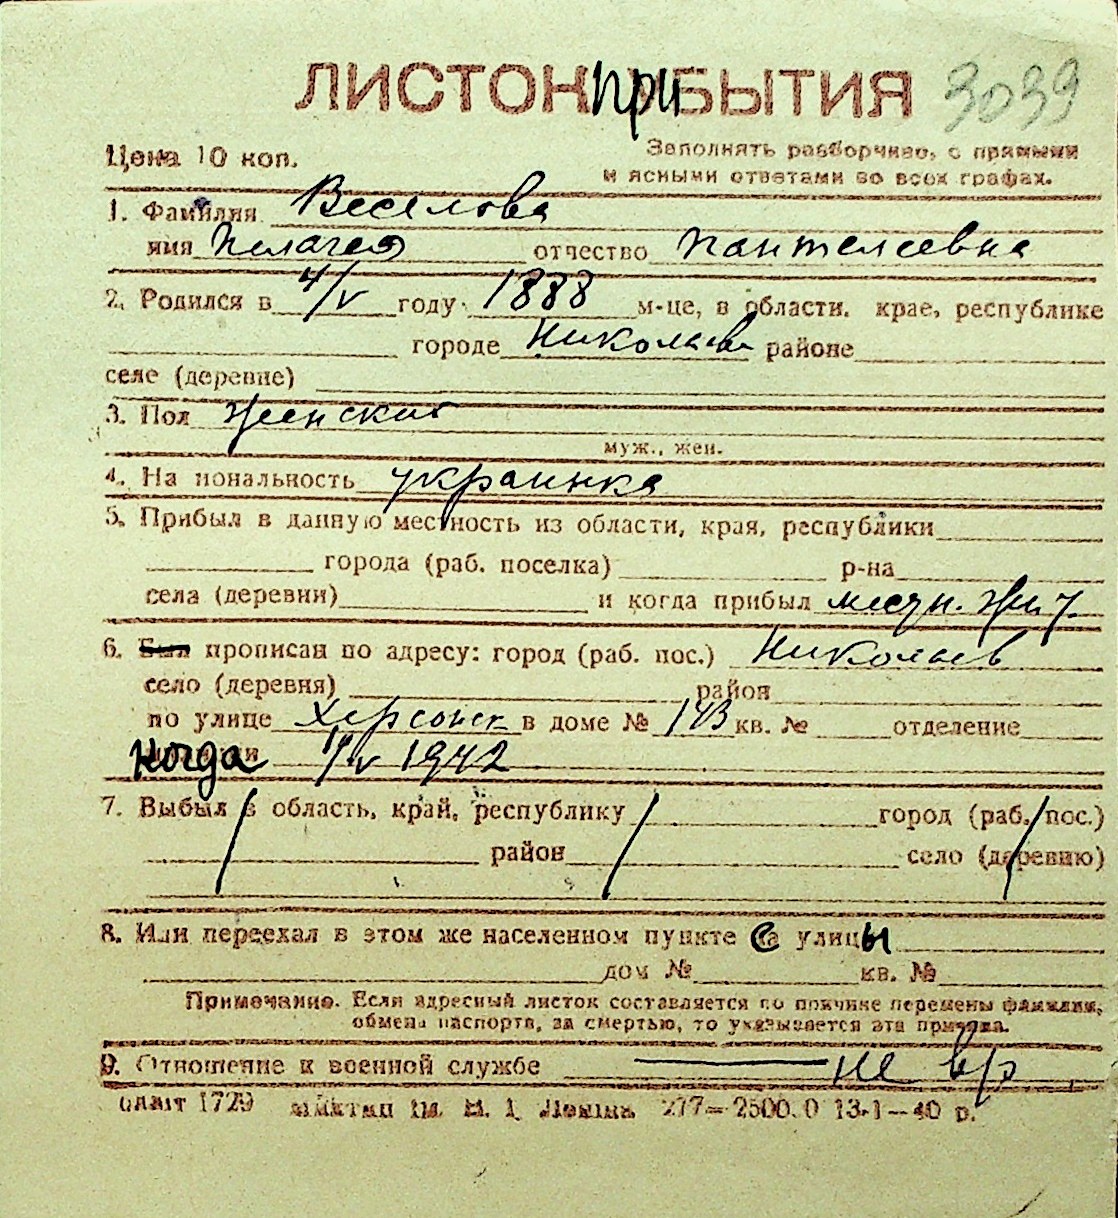 ЛИСТОК приБЫТИЯ 3039
Цена 10 коп.
Заполнять разборчиво, с прямыми
и ясными ответами во всех графах.
1. Фамилия Веселова
имя Пелагея отчество Пантелеевна
2. Родился в 4/V году 1888 м-це, в области, крае, республике
городе Николаев районе
селе (деревне)
3. Пол женский
муж., жен.
4. На иональность украинка
5. Прибыл в данную местность из области, края, республики
города (раб. поселка) р-на
села (деревни) и когда прибыл местн. жит.
6. Был прописан по адресу: город (раб. пос.) Николаев
село (деревня) район
по улице Херсонск в доме № 143 кв. № отделение
когда 1/V 1942
7. Выбыл в область, край, республику город (раб. пос.)
район село (деревню)
8. Или переехал в этом же населенном пункте са улицы
дом № кв. №
Примечание. Если адресный листок составляется по причине перемены фамилии,
обмена паспорта, за смертью, то указывается эта причина.
9. Отношение к военной службе не в/о
1729 277—2500.0 13-1—40 р.